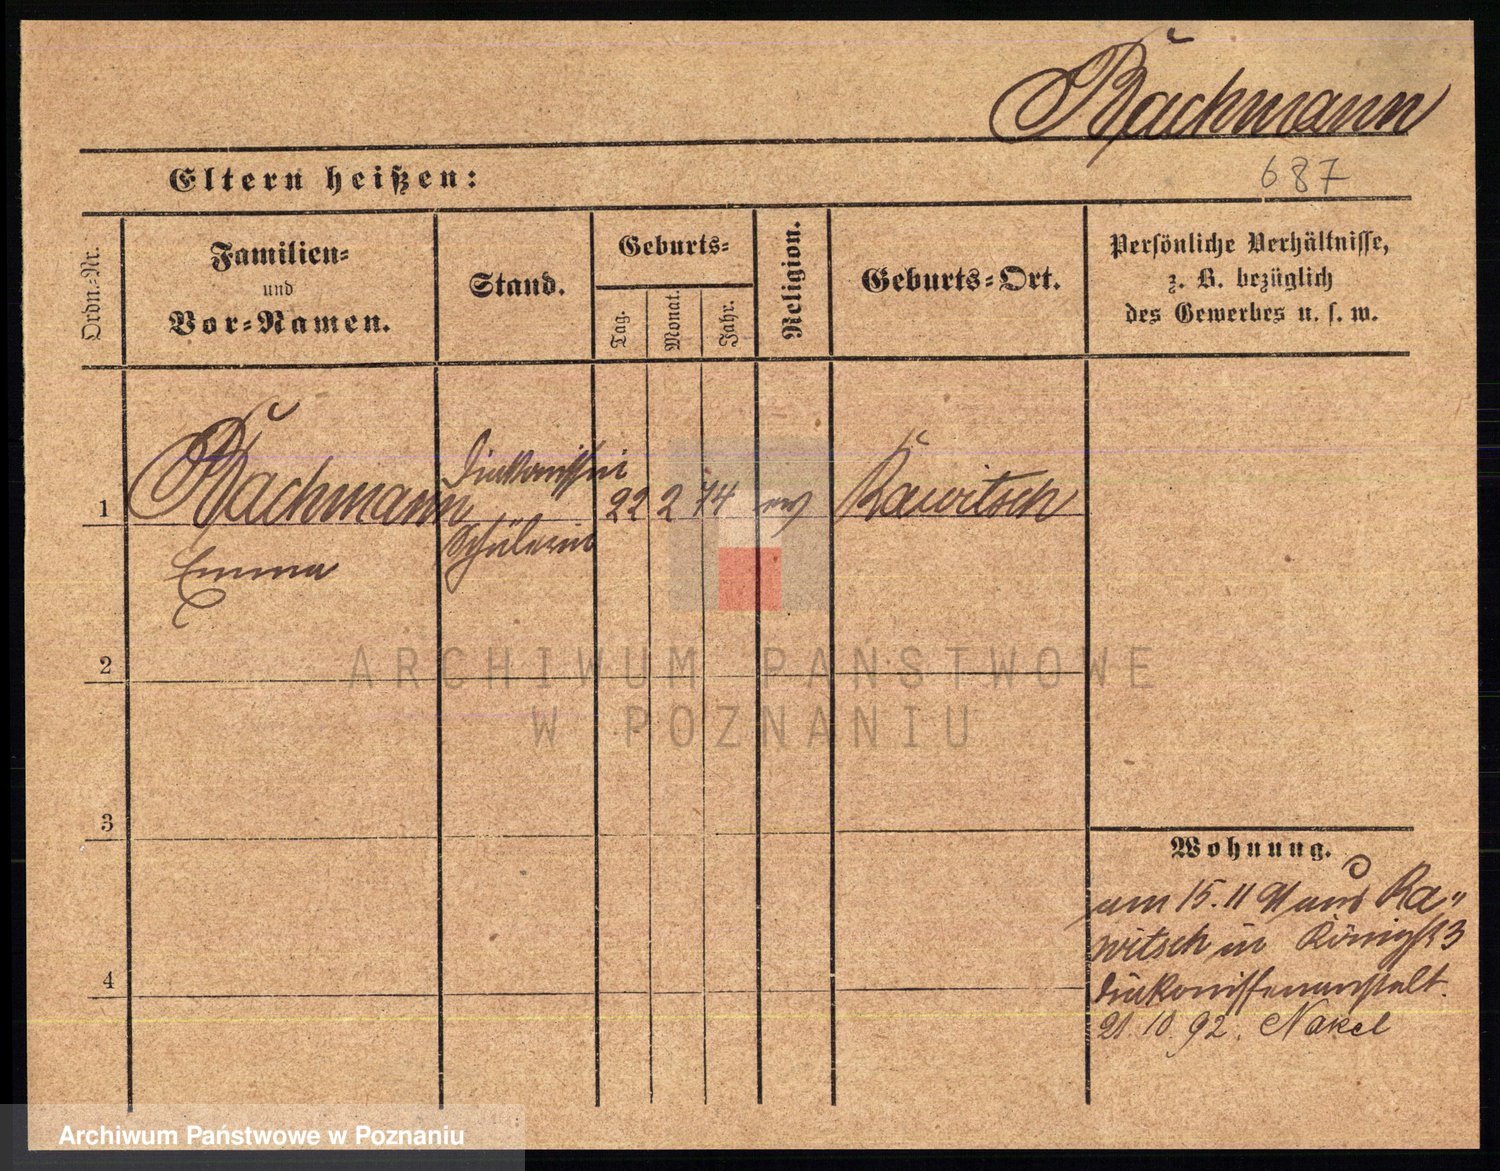 Bachmann
687
Eltern heißen:
Ordn.-Nr.
Familien-
und
Vor-Namen.
Stand.
Geburts-
Tag.
Monat.
Jahr.
Religion.
Geburts-Ort.
Persönliche Verhältnisse,
z. B. bezüglich
des Gewerbes u. s. w.
1
Bachmann
Emma
Diakonissen
Schülerin
22 2 74 ev
Rawitsch
2
ARCHIWUM PAŃSTWOWE
W POZNANIU
3
4
Wohnung.
am 15. 11 91 aus Ra-
witsch in Königstr 3
Diakonissenanstalt.
21. 10. 92. Nakel
Archiwum Państwowe w Poznaniu